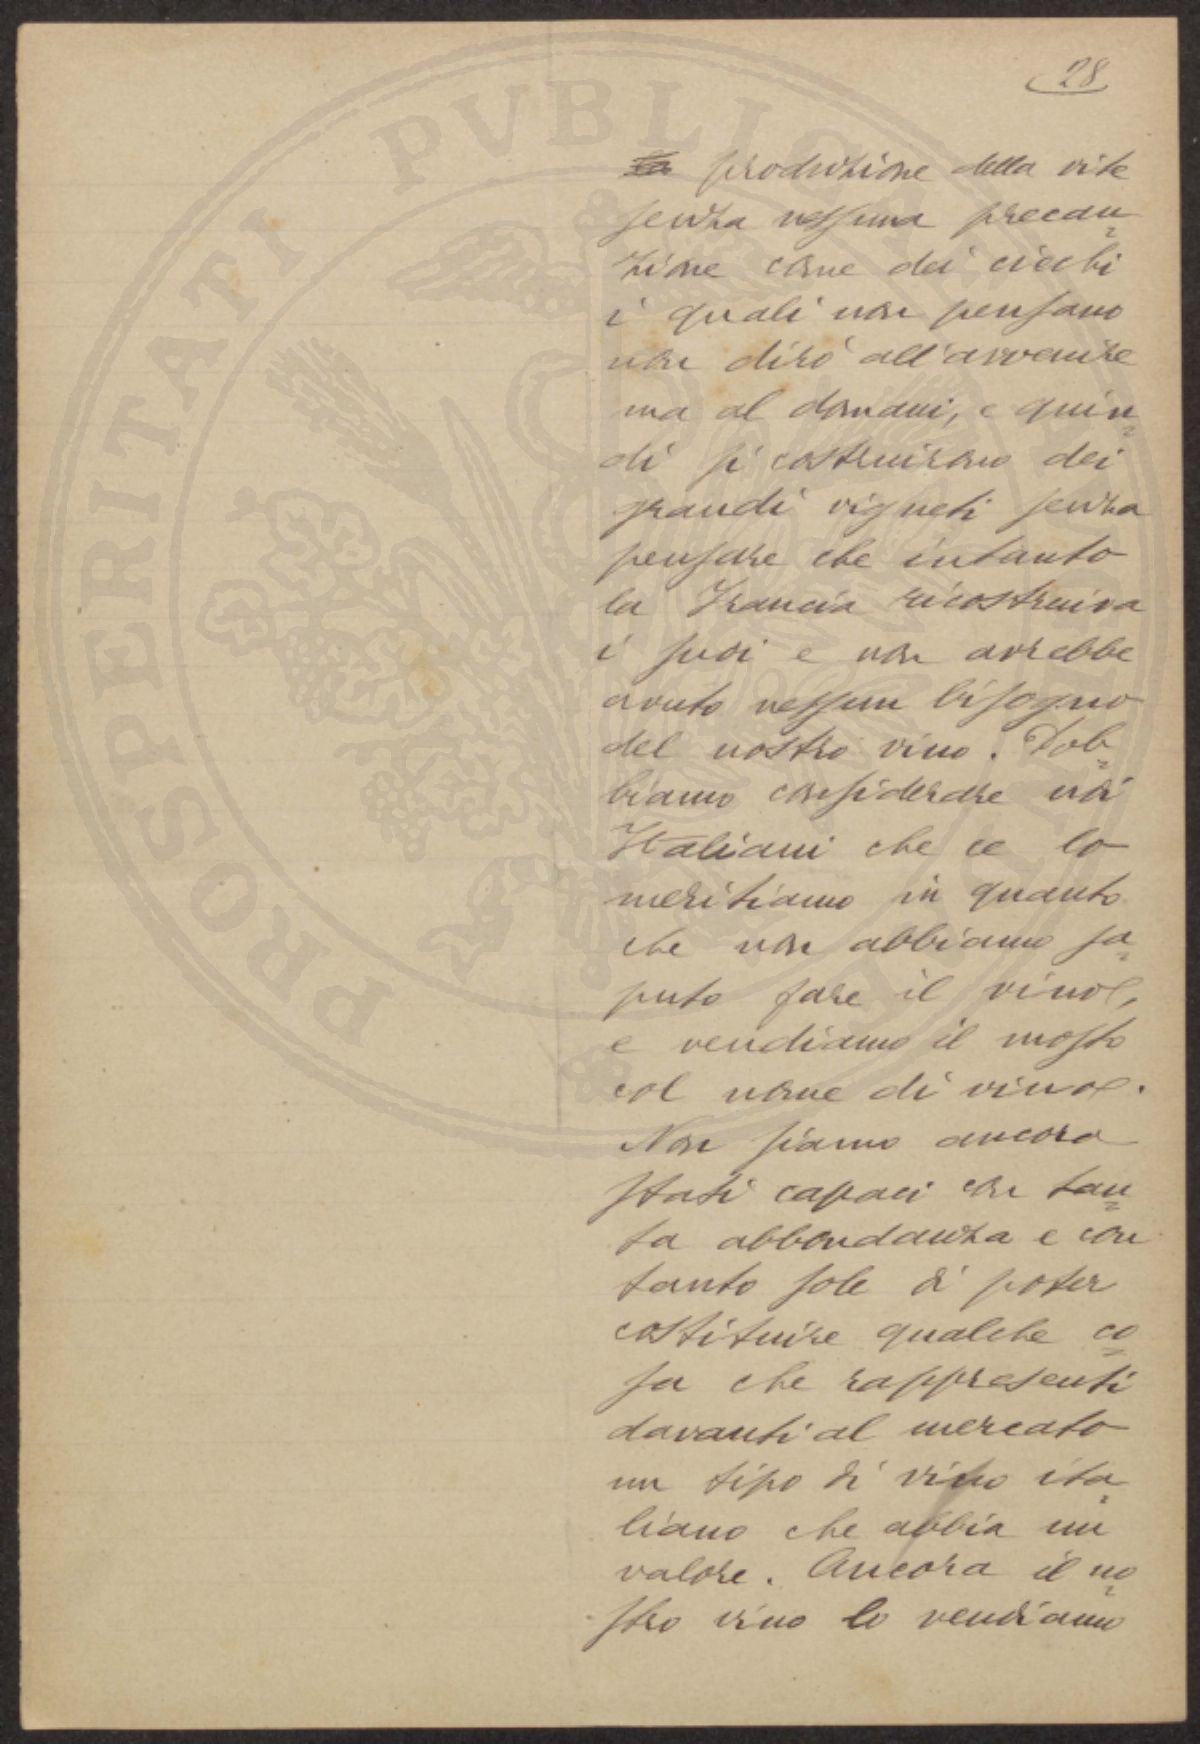 28
la produzione della vite
senza nessuna precau=
zione come dei ciechi
i quali non pensano
non dirò all'avvenire
ma al domani, e quin=
di si costruirono dei
grandi vigneti senza
pensare che intanto
la Francia ricostruiva
i suoi e non avrebbe
avuto nessun bisogno
del nostro vino. Dob=
biamo considerare noi
Italiani che ce lo
meritiamo in quanto
che non abbiamo sa=
puto fare il vino,
e vendiamo il mosto
col nome di vino.
Non siamo ancora
stati capaci con tan=
ta abbondanza e con
tanto sole di poter
costituire qualche co=
sa che rappresenti
davanti al mercato
un tipo di vino ita=
liano che abbia un
valore. Ancora il no=
stro vino lo vendiamo
PROSPERITATI PVBLICAE